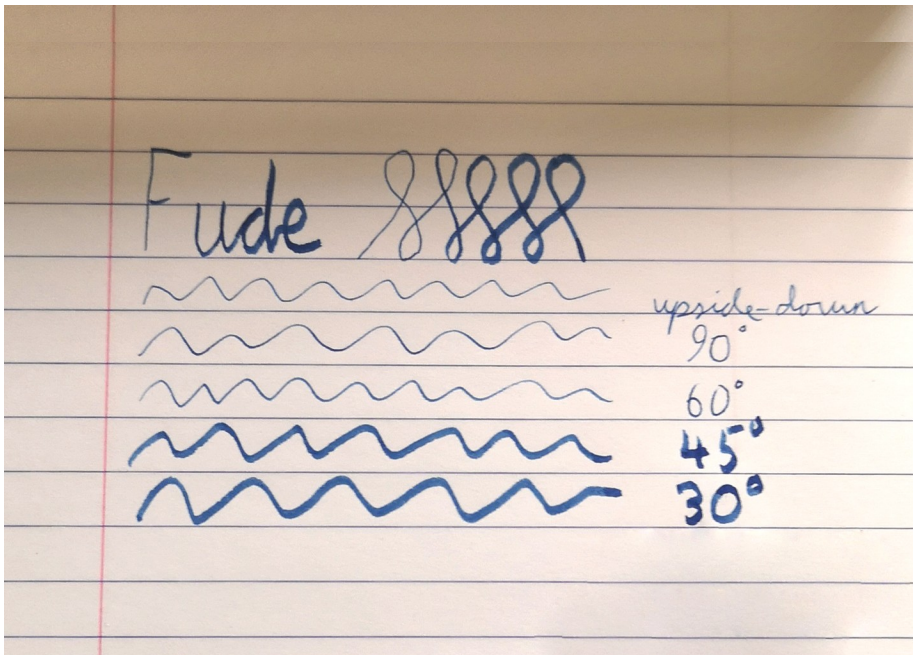 Fude
upside-down
90°
60°
45°
30°